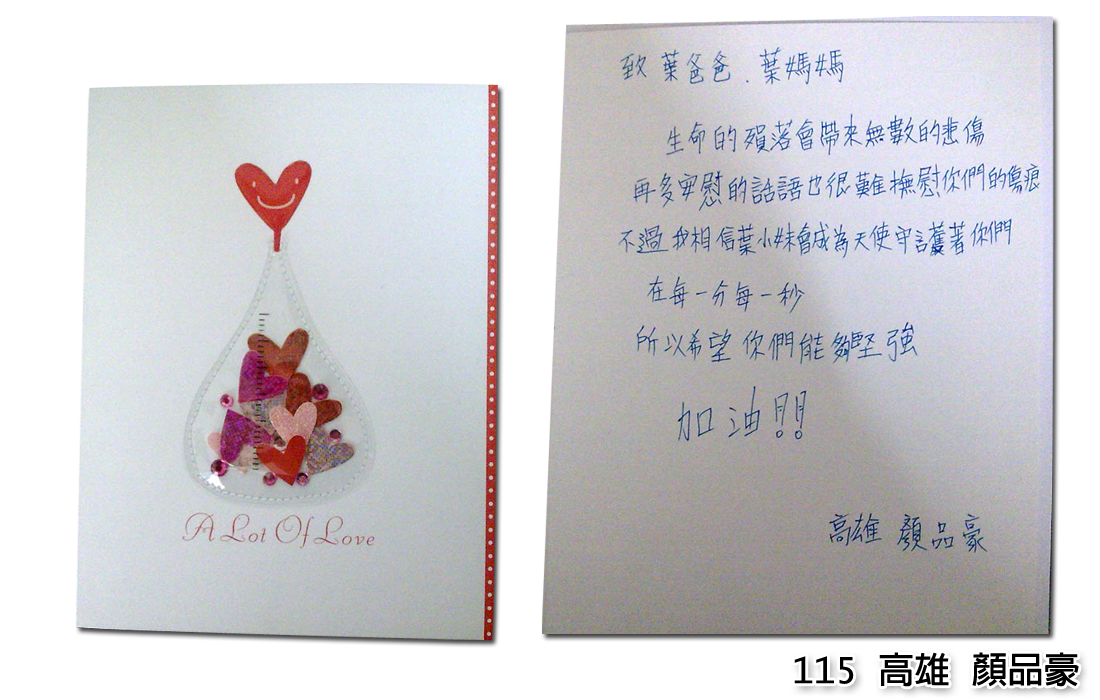 A Lot Of Love
致 葉爸爸、葉媽媽
生命的殞落會帶來無數的悲傷
再多安慰的話語也很難撫慰你們的傷痕
不過我相信葉小妹會成為天使守護著你們
在每一分每一秒
所以希望你們能夠堅強
加油!!
高雄 顏品豪
115 高雄 顏品豪